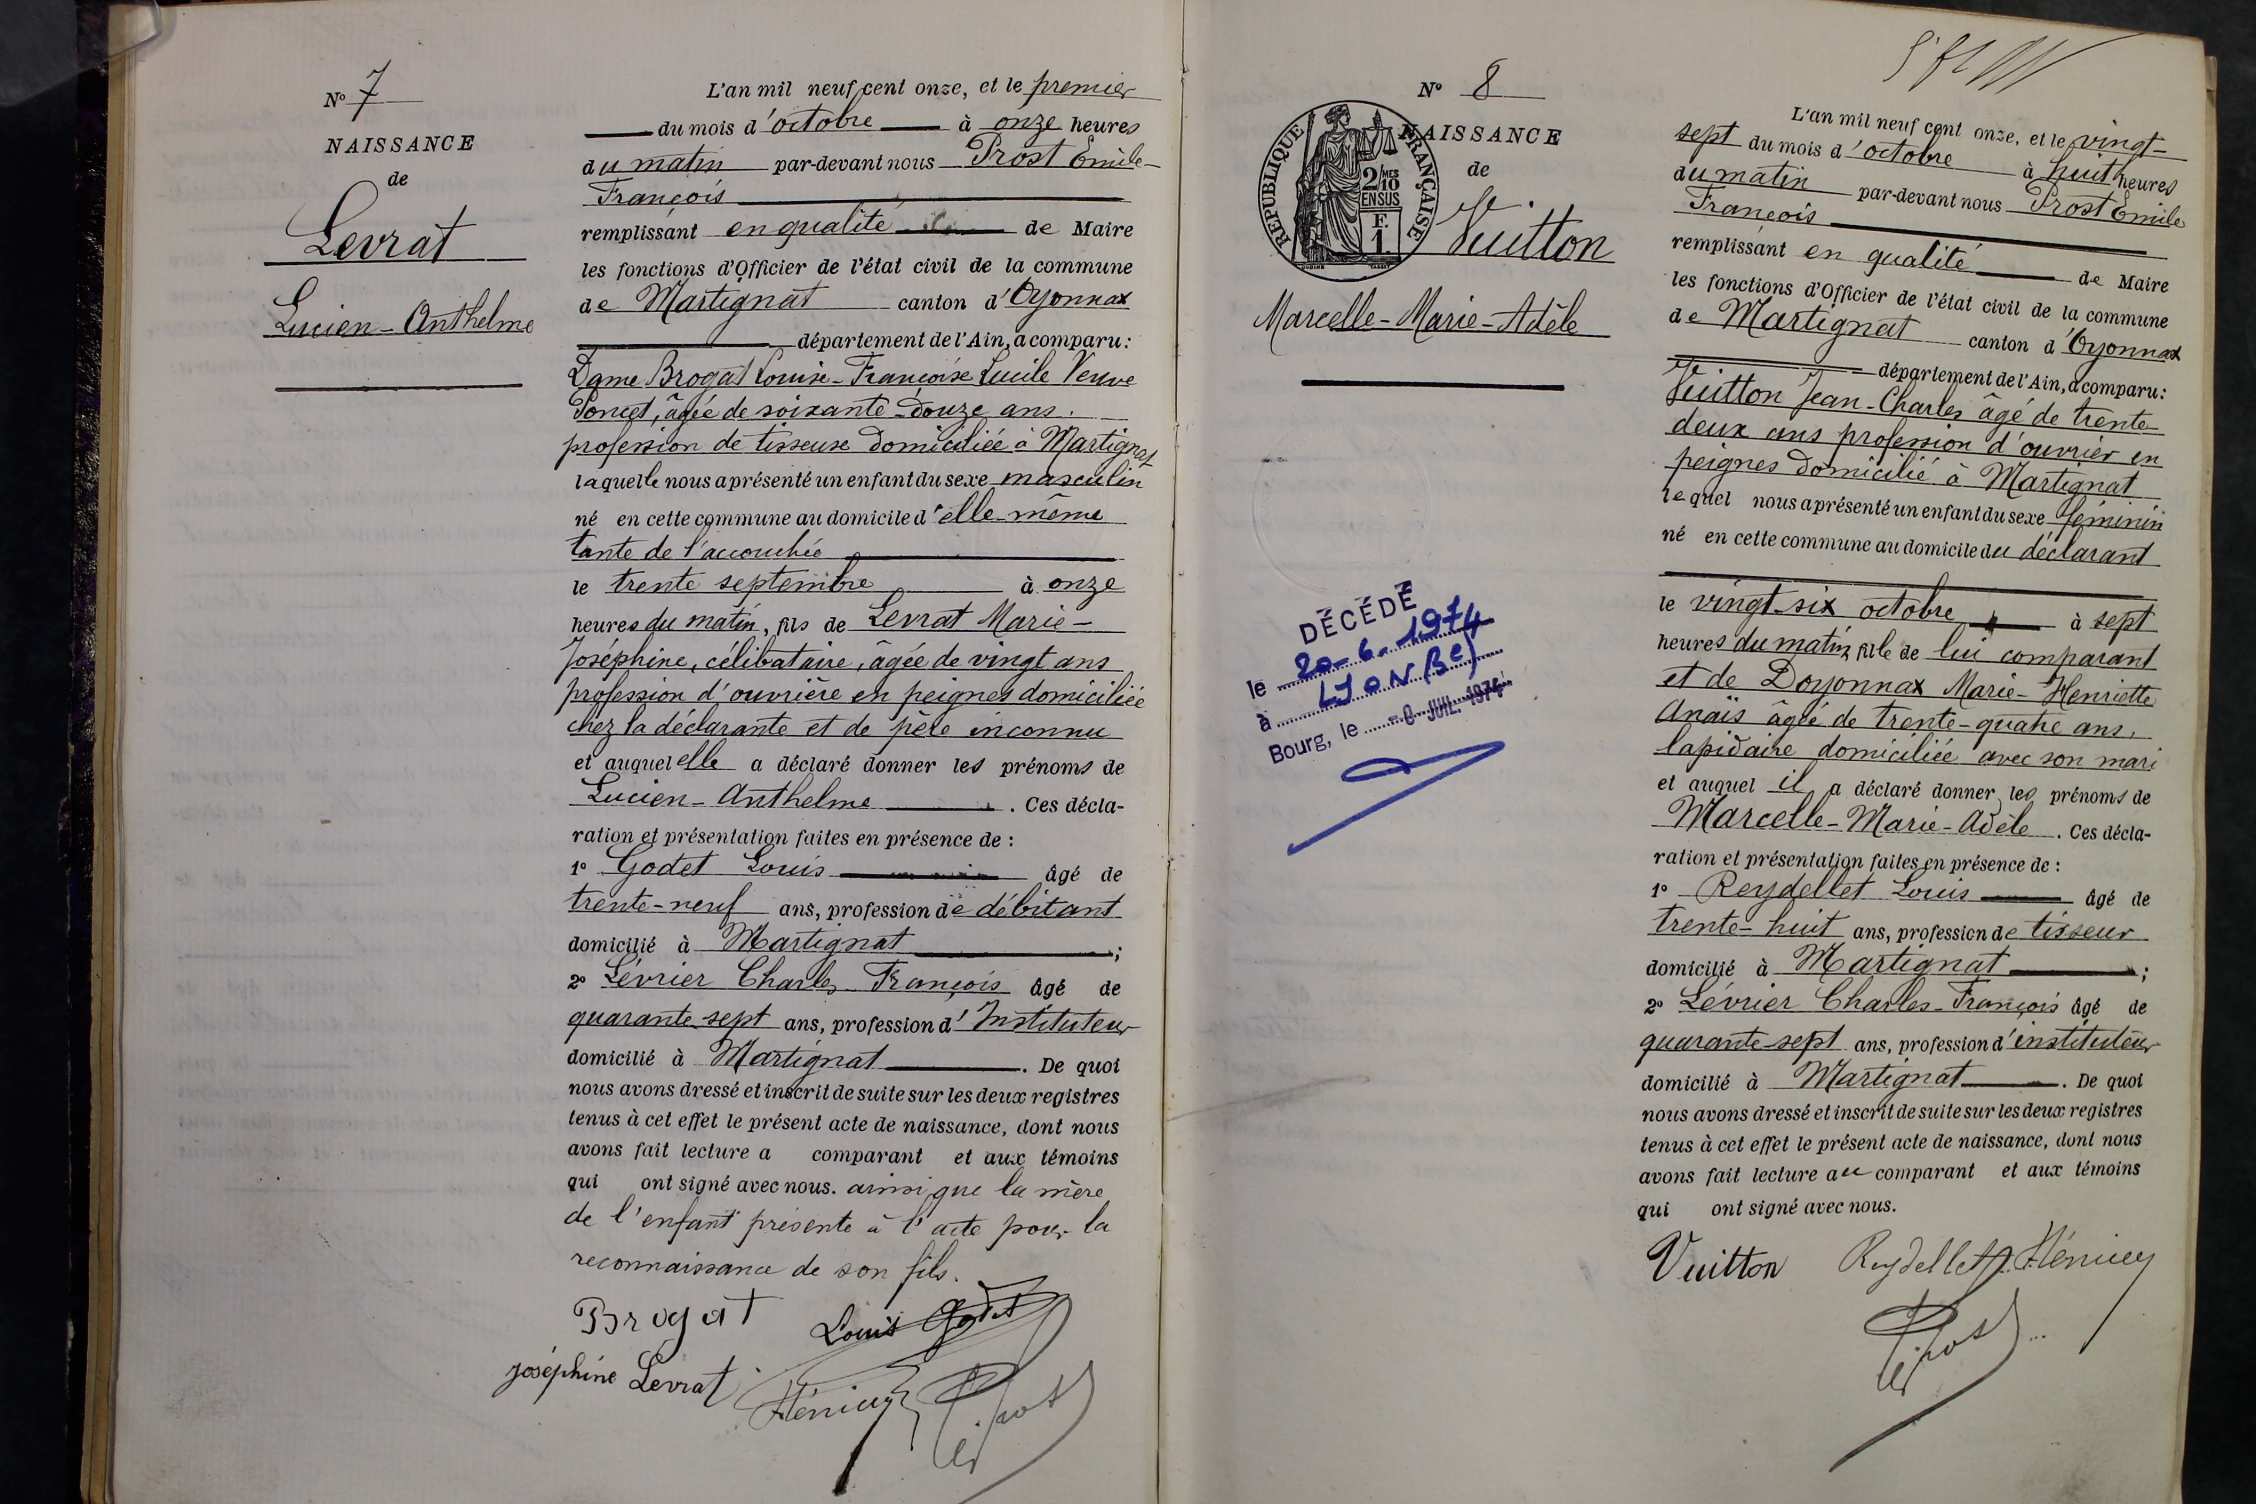 N° 7
NAISSANCE
de
Levrat
Lucien-Anthelme
L'an mil neuf cent onze, et le premier
du mois d'octobre à onze heures
du matin par-devant nous Prost Emile-
François
remplissant en qualité de Maire
les fonctions d'Officier de l'état civil de la commune
de Martignat canton d'Oyonnax
département de l'Ain, a comparu:
Dame Brogat Louise-Françoise Lucile Veuve
Poncet, âgée de soixante-douze ans.
profession de tisseuse domiciliée à Martignat
laquelle nous a présenté un enfant du sexe masculin
né en cette commune au domicile d'elle-même
tante de l'accouchée
le trente septembre à onze
heures du matin, fils de Levrat Marie-
Joséphine, célibataire, âgée de vingt ans
profession d'ouvrière en peignes domiciliée
chez la déclarante et de père inconnu
et auquel elle a déclaré donner les prénoms de
Lucien-Anthelme. Ces décla-
ration et présentation faites en présence de :
1° Godet Louis âgé de
trente-neuf ans, profession de débitant
domicilié à Martignat ;
2° Lévrier Charles François âgé de
quarante-sept ans, profession d'Instituteur
domicilié à Martignat. De quoi
nous avons dressé et inscrit de suite sur les deux registres
tenus à cet effet le présent acte de naissance, dont nous
avons fait lecture a comparant et aux témoins
qui ont signé avec nous. ainsi que la mère
de l'enfant présente à l'acte pour la
reconnaissance de son fils.
Brogat Louis Godet
Joséphine Levrat
Prost
N° 8
NAISSANCE
de
REPUBLIQUE FRANÇAISE
2/10 MES
EN SUS
F.
1
Vuitton
Marcelle-Marie-Adèle
DÉCÉDÉ
le 20-6-1974
à LYON (8e)
Bourg, le -8 JUIL. 1974
L'an mil neuf cent onze, et le vingt-
sept du mois d'octobre à huit heures
du matin par-devant nous Prost Emile
François
remplissant en qualité de Maire
les fonctions d'Officier de l'état civil de la commune
de Martignat canton d'Oyonnax
département de l'Ain, a comparu:
Vuitton Jean-Charles âgé de trente-
deux ans profession d'ouvrier en
peignes domicilié à Martignat
lequel nous a présenté un enfant du sexe féminin
né en cette commune au domicile du déclarant
le vingt-six octobre à sept
heures du matin, fille de lui comparant
et de Doyonnax Marie-Henriette
Anaïs âgée de trente-quatre ans,
lapidaire domiciliée avec son mari
et auquel il a déclaré donner les prénoms de
Marcelle-Marie-Adèle. Ces décla-
ration et présentation faites en présence de :
1° Reydellet Louis âgé de
trente-huit ans, profession de tisseur
domicilié à Martignat ;
2° Lévrier Charles-François âgé de
quarante-sept ans, profession d'instituteur
domicilié à Martignat. De quoi
nous avons dressé et inscrit de suite sur les deux registres
tenus à cet effet le présent acte de naissance, dont nous
avons fait lecture au comparant et aux témoins
qui ont signé avec nous.
Vuitton Reydellet
Prost